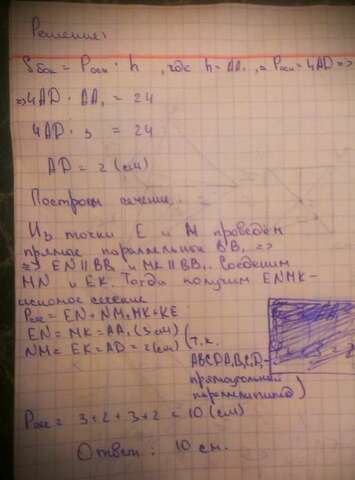 Решение:
Sбок = Pосн · h , где h = AA₁, а Pосн = 4AD =>
=> 4AD · AA₁ = 24
4AD · 3 = 24
AD = 2 (см)
Построим сечение.
Из точки E и M проведём
прямые, параллельные BB₁ =>
=> EN || BB₁ и MK || BB₁. Соединим
MN и EK. Тогда получим ENMK -
искомое сечение
Pсеч = EN + NM + MK + KE
EN = MK = AA₁ (3 см)
NM = EK = AD = 2 (см) (т.к.
ABCDA₁B₁C₁D₁ -
прямоугольный
параллелепипед)
Pсеч = 3 + 2 + 3 + 2 = 10 (см)
Ответ: 10 см.